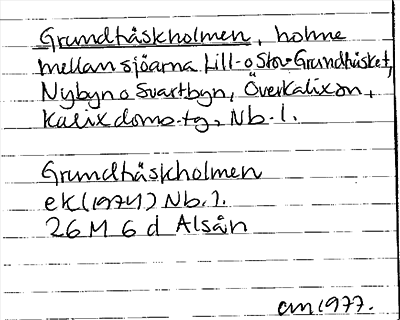 Grundtåskholmen, holme
mellan sjöarna Lill- o Stor-Grundtåsket,
Nybyn o Svartbyn, Överkalix sn,
Kalix doms.tg, Nb. l.
Grundtåskholmen
ek (1974) Nb. l.
26 M 6 d Alsån
am 1977.